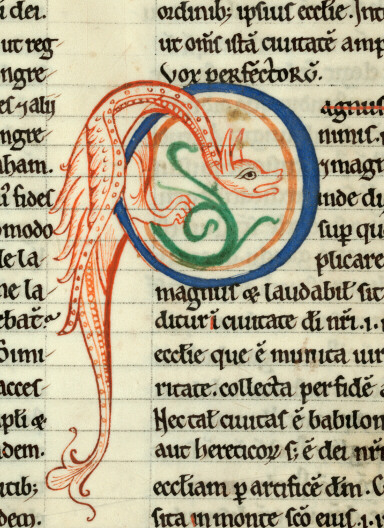 i dei.
ut reg
ngre
es ⁊ alij
ngre
ham.
fides
omodo
de la
ne la
ebat
Simi
acces
pli &
dem.
utib;
dem.
ordinib; ipsius ecclie. Int
ut om̄s istā ciuitatē amp
vox perfectorū.
agnus
nimis.
⁊ magn
inde di
sup que
plicare
magnus & laudabil' sit
ditur i ciuitate dī nr̄i. i.
ecclie que ē munita uir
ritate. collecta per fidē a
Nec tal' ciuitas ē babilon
aut hereticoꝝ s; ē dei nr̄i
eccliam ꝑ artificē dim̄. C
sita in monte scō eius. i.